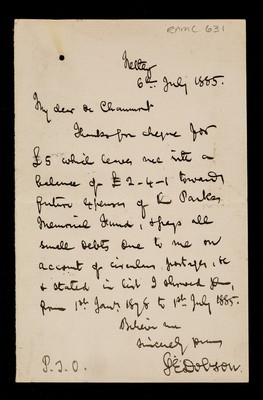 RAMC 631
Netley
6th July 1885.
My dear de Chaumont
Thanks for cheque for
£5 which leaves me with a
balance of £2-4-1 towards
future expenses of the Parkes
Memorial Fund, & pays all
small debts due to me on
account of circulars, postages, &c
& stated in list I showed you,
from 1st Jany. 1878 to 1st July 1885.
Believe me
Sincerely yours
G E Dobson.
P.T.O.